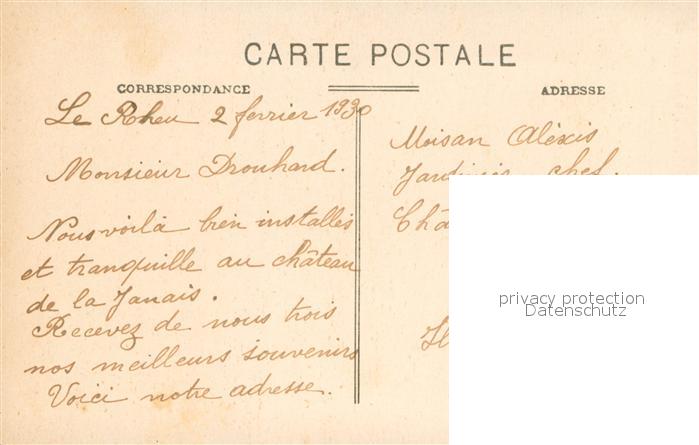 CARTE POSTALE
CORRESPONDANCE
ADRESSE
Le Rheu 2 fevrier 1930
Monsieur Drouhard.
Nous voilà bien installés
et tranquille au château
de la Janais.
Recevez de nous trois
nos meilleurs souvenirs
Voici notre adresse.
Moisan Alexis
Jardinier chef.
Châ
privacy protection
Datenschutz